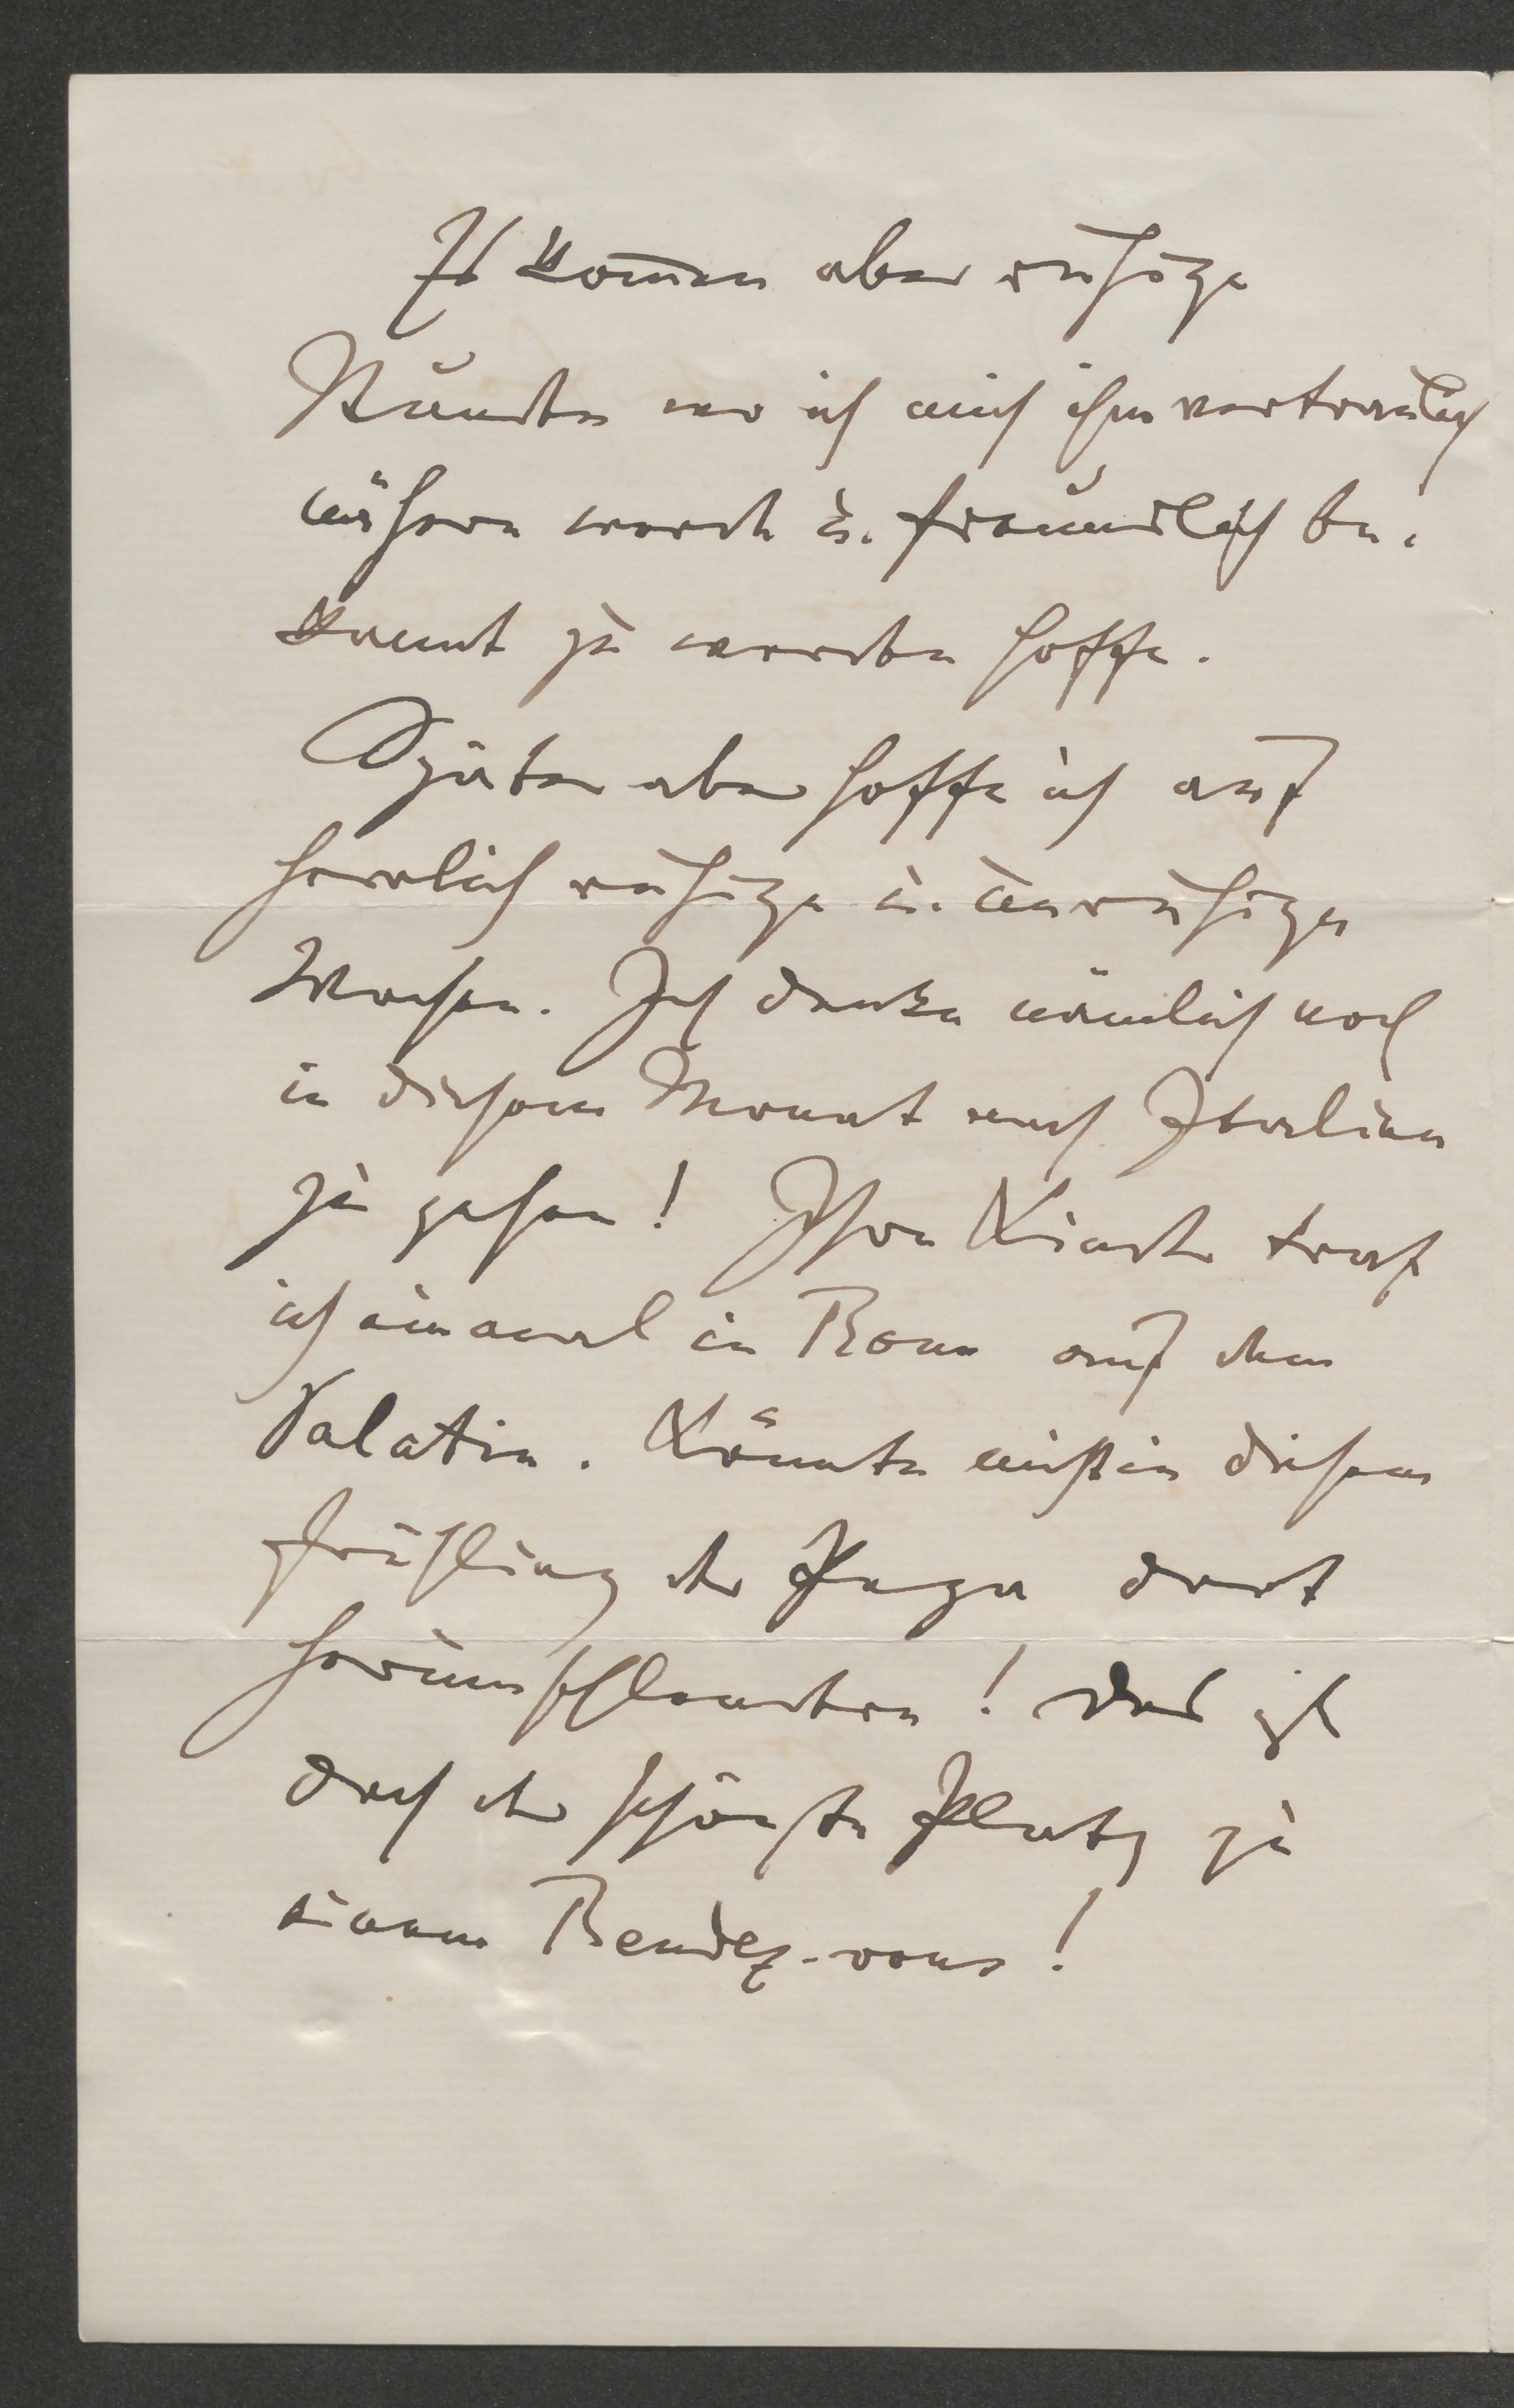 Es kom̅en aber ruhige
Stunden wo ich mich ihm vertraulich
nähern werde u. freundlich be-
kannt zu werden hoffe.
Später aber hoffe ich auf
herrlich ruhige u. unruhige
Wochen. Ich denke nämlich noch
in diesem Monat nach Italien
zu gehen! Ihre Kinder traf
ich einmal in Rom auf dem
Palatin. Könnte nicht in diesem
Frühling der Papa dort
herumschlendern! Das ist
doch der schönste Platz zu
einem Rendez-vous!